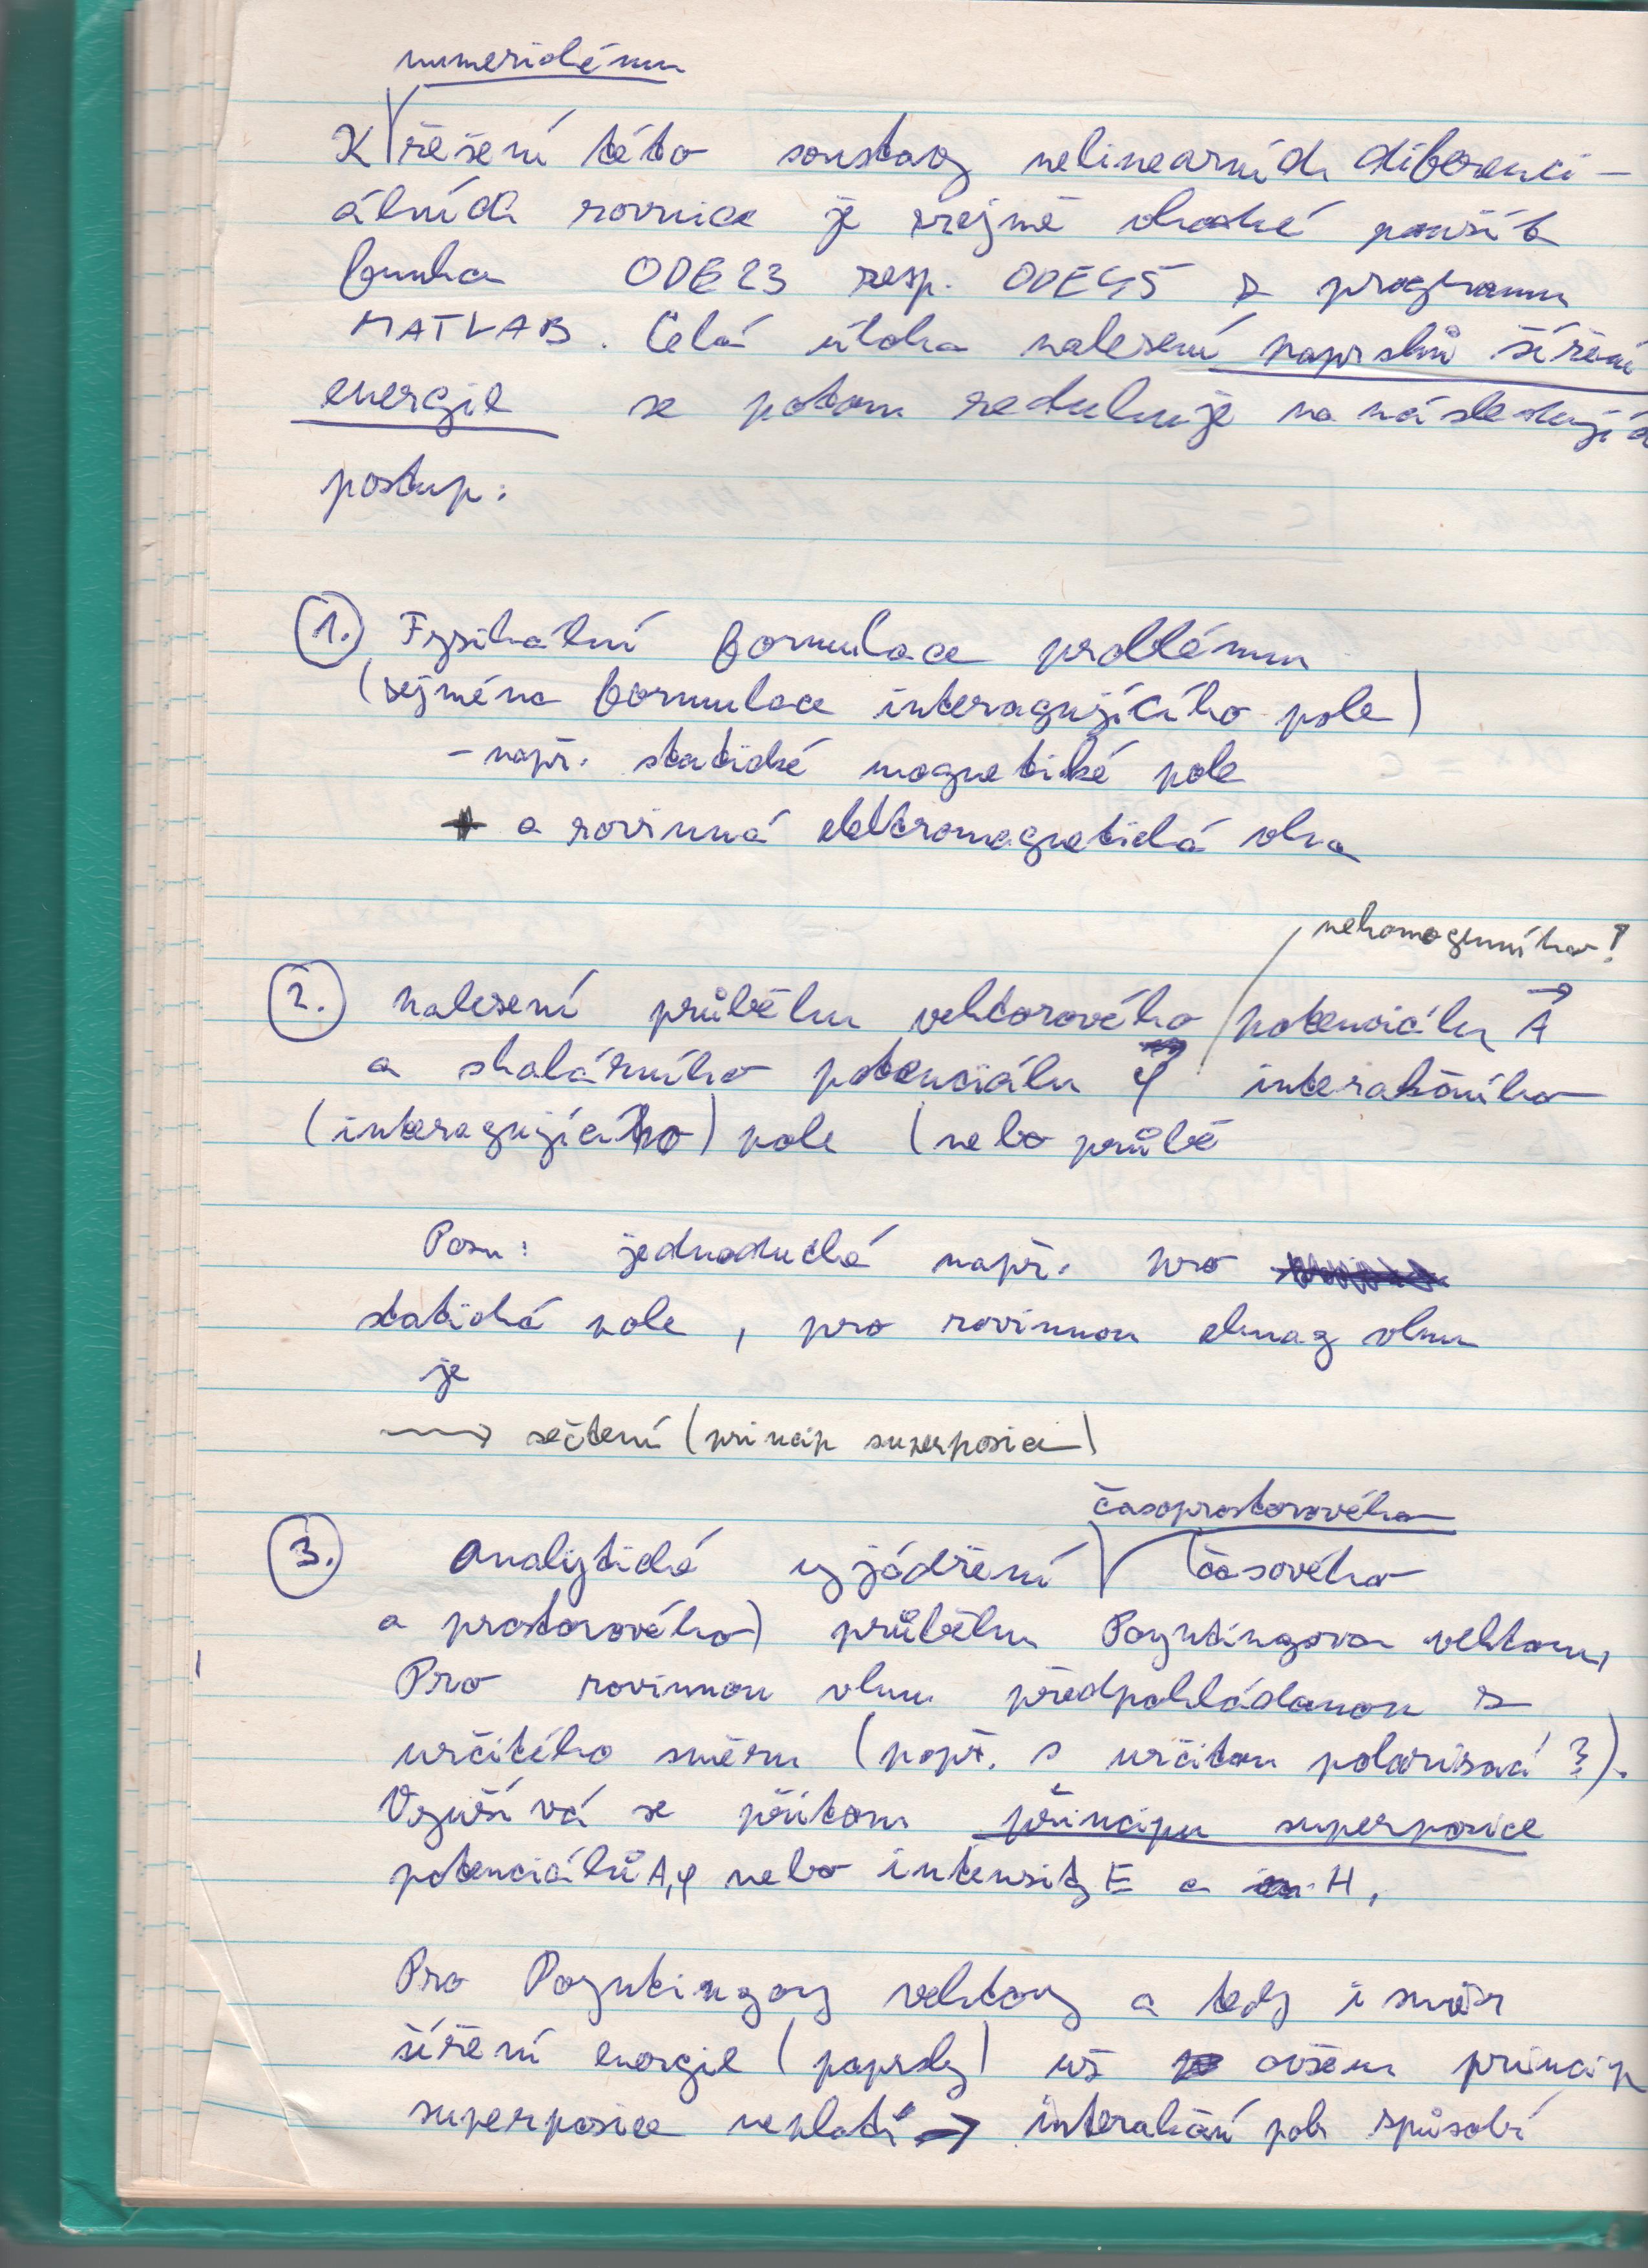 numerickému
K řešení této soustavy nelineárních diferenci-
álních rovnice je zřejmě vhodné použít
funkce ODE23 resp. ODE45 z programu
MATLAB. Celá úloha nalezení paprsků šíření
energie se potom redukuje na následující
postup:
1. Fyzikální formulace problému
(zejména formulace interagujícího pole)
- např. statické magnetické pole
+ a rovinná elektromagnetická vlna
nehomogenního!
2. nalezení průběhu vektorového potenciálu A
a skalárního potenciálu φ interakčního
(interagujícího) pole (nebo průbě
Pozn: jednoduché např. pro
statická pole, pro rovinnou elmag vlnu
je
→ sečtení (princip superpozice)
časoprostorového
3. analytické vyjádření (časového
a prostorového) průběhu Poyntingova vektoru,
Pro rovinnou vlnu předpokládanou z
určitého směru (popř. s určitou polarizací ?).
Využívá se přitom principu superpozice
potenciálů A,φ nebo intenzity E a H,
Pro Poyntingovy vektory a tedy i směr
šíření energie (paprsky) už ovšem princip
superpozice neplatí → interakční pole způsobí